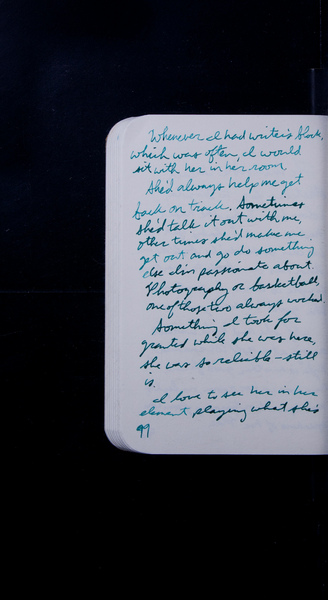 Whenever I had writer's block,
which was often, I would
sit with her in her room
She'd always help me get
back on track. Sometimes
she'd talk it out with me,
other times she'd make me
get out and go do something
else I'm passionate about.
Photography or basketball,
one of those two always worked.
Something I took for
granted while she was here,
she was so reliable - still
is.
I love to see her in her
element playing what she's
99